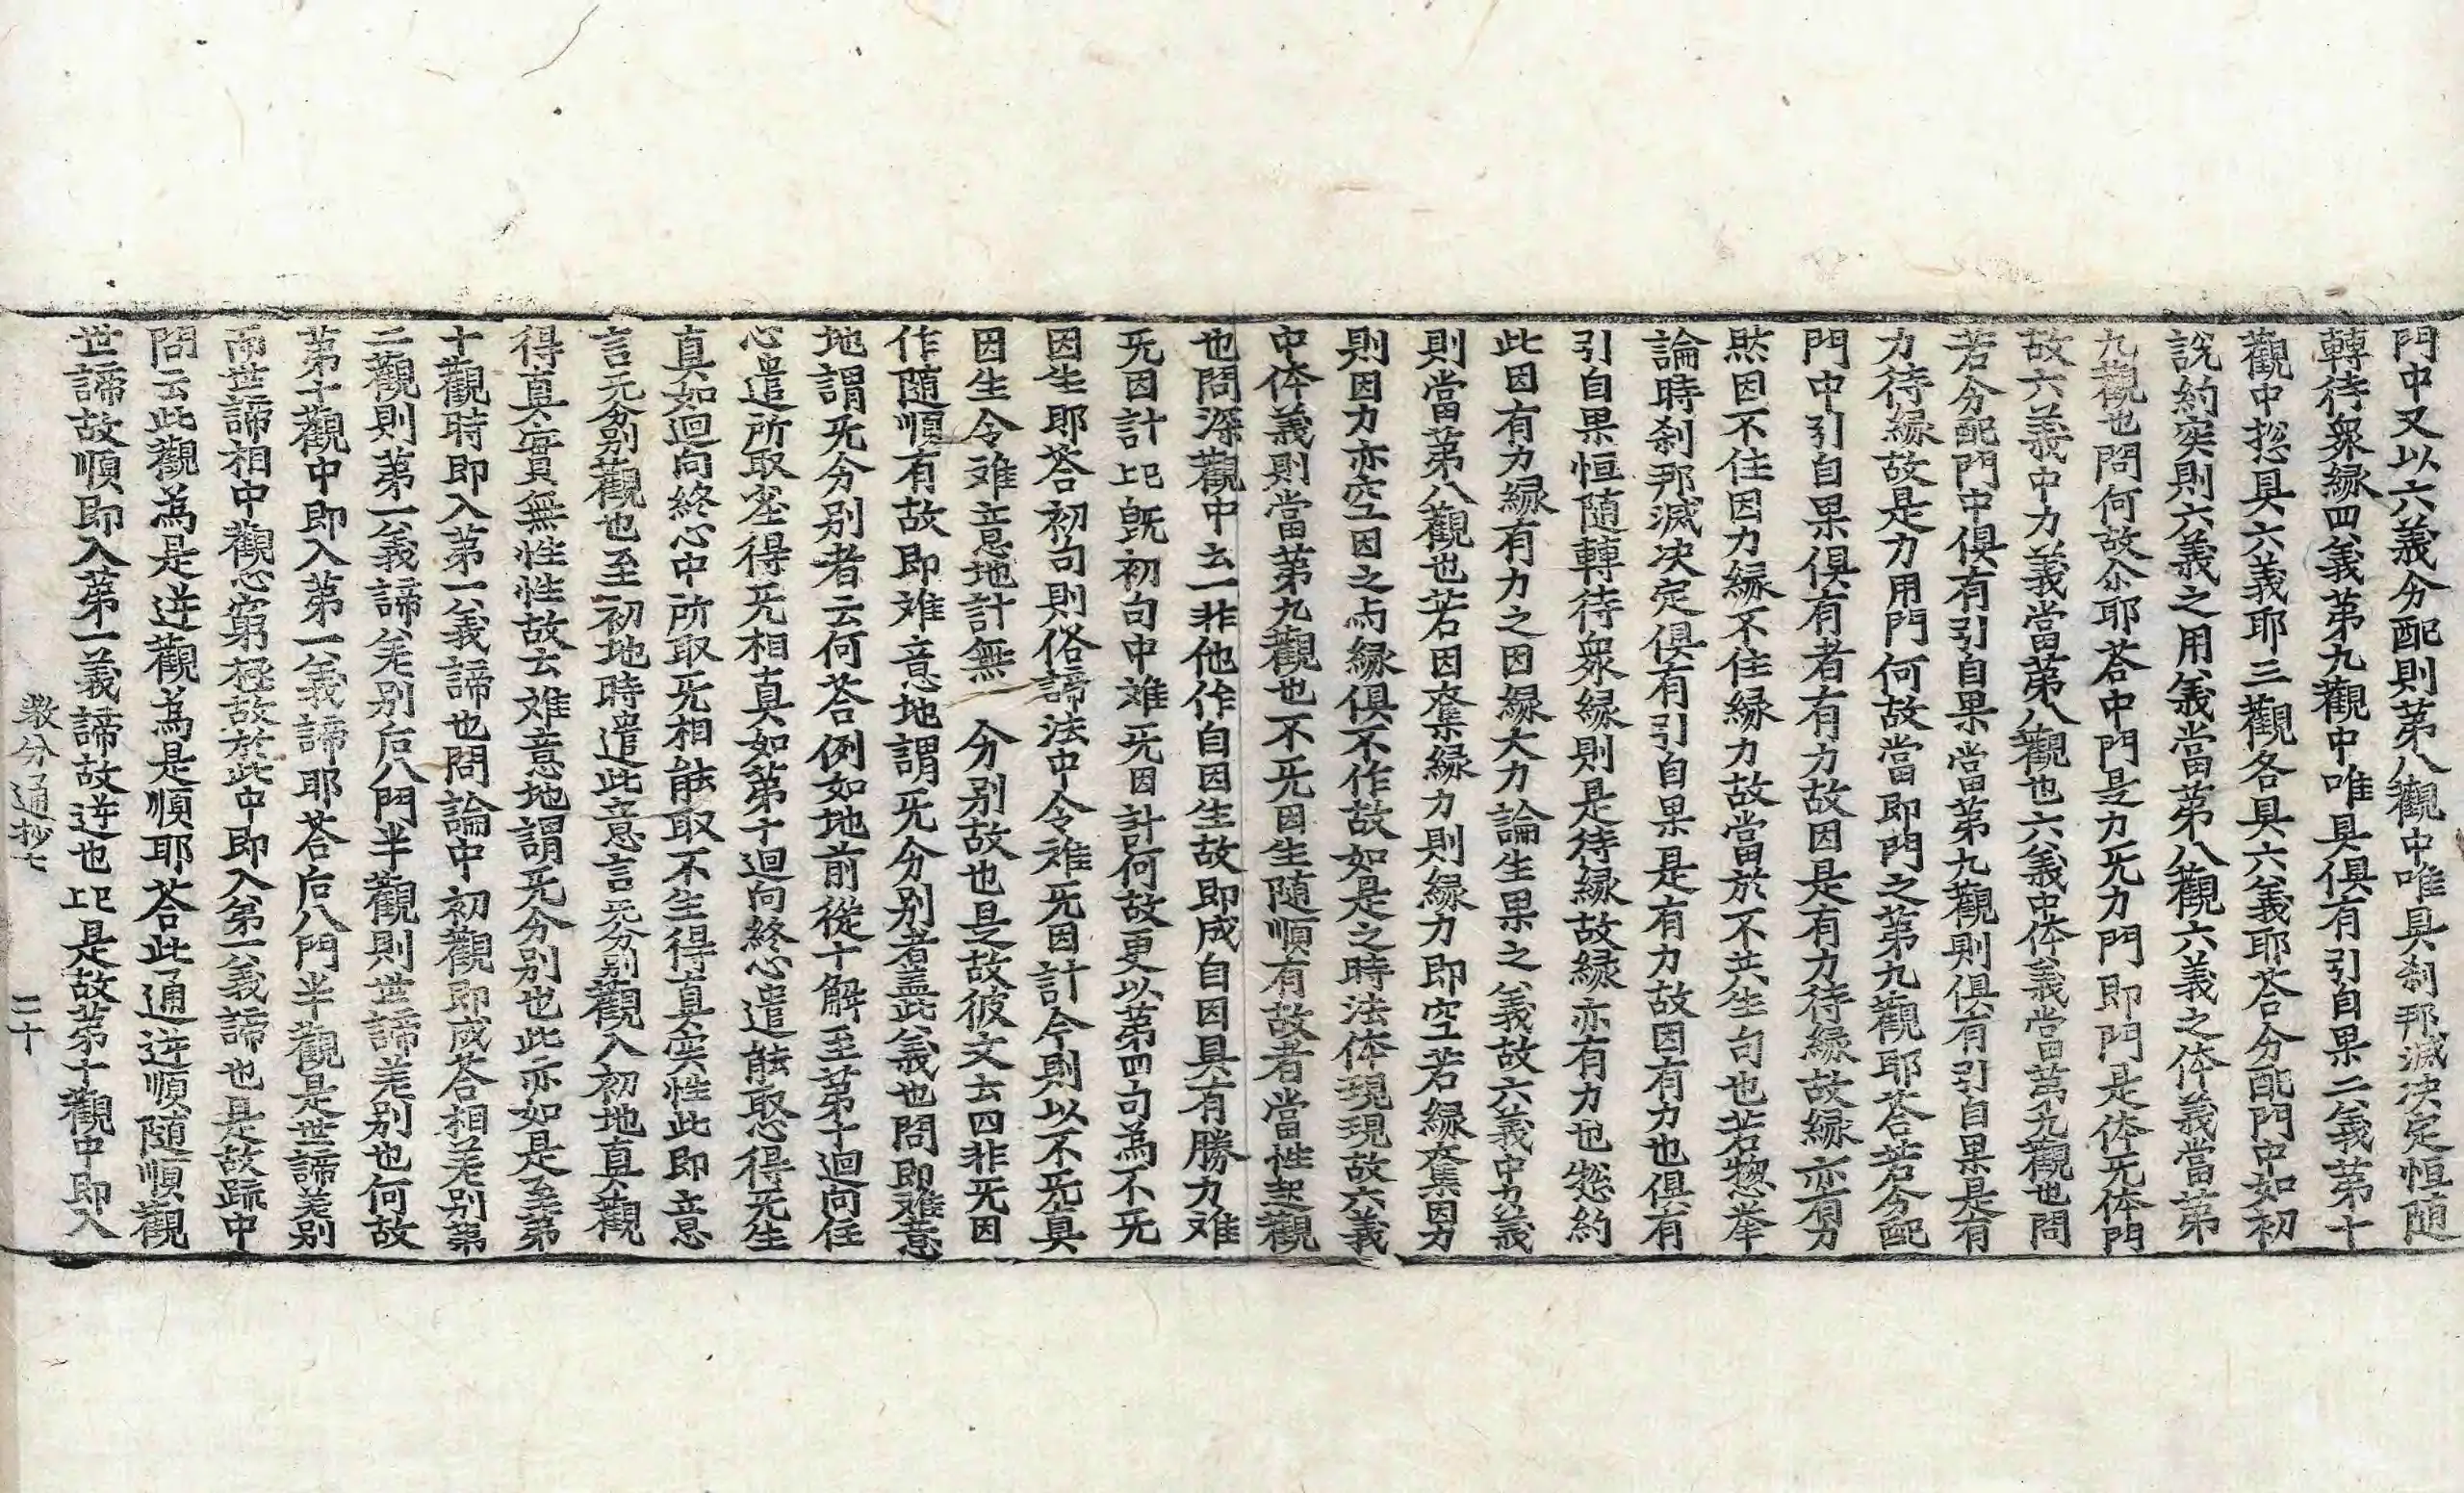 門中又以六義分配則第八觀中唯具刹那滅决定恒随
轉待衆縁四義第九觀中唯具俱有引自果二義第十
觀中揔具六義耶三觀各具六義耶荅分配門中如初
說約実則六義之用義當第八觀六義之体義當第
九觀也問何故尒耶荅中門是力旡力門即門是体旡体門
故六義中力義當第八觀也六義中体義當第九觀也問
若分配門中俱有引自果當第九觀則俱有引自果是有
力待縁故是力用門何故當即門之第九觀耶荅若分配
門中引自果俱有者有力故因是有力待縁故縁亦有力
然因不住因力縁不住縁力故當於不共生句也若惣举
論時刹那滅决定俱有引自果是有力故因有力也俱有
引自果恒随轉待衆縁則是待縁故縁亦有力也惣約
此因有力縁有力之因縁大力論生果之義故六義中力義
則當第八觀也若因奪縁力則縁力即空若縁奪因力
則因力亦空因之与縁俱不作故如是之時法体現現故六義
中体義則當第九觀也不旡因生随順有故者當性起觀
也問深觀中云一非他作自因生故即成自因具有勝力难
旡因計此旣初句中难旡因計何故更以第四句為不旡
因生耶荅初句則俗諦法中令难旡因計今則以不旡真
因生令难意地計無 分别故也是故彼文云四非旡因
作随順有故即难意地謂旡分别者盖此義也問即难意
地謂旡分别者云何荅例如地前從十解至第十迴向住
心遣所取塵得旡相真如第十迴向終心遣能取心得旡生
真如迴向終心中所取旡相能取不生得真実性此即意
言旡分别觀也至初地時遣此意言旡分别觀入初地真觀
得真實無性性故云难意地謂旡分别也此亦如是至第
十觀時即入第一義諦也問論中初觀即成荅相差别第
二觀則第一義諦差别后八門半觀則世諦差别也何故
第十觀中即入第一義諦耶荅后八門半觀是世諦差别
而世諦相中觀心窮極故於此中即入第一義諦也是故䟽中
問云此觀為是逆觀為是順耶荅此通逆順随順觀
世諦故順即入第一義諦故逆也此是故第十觀中即入
教分通抄七 二十